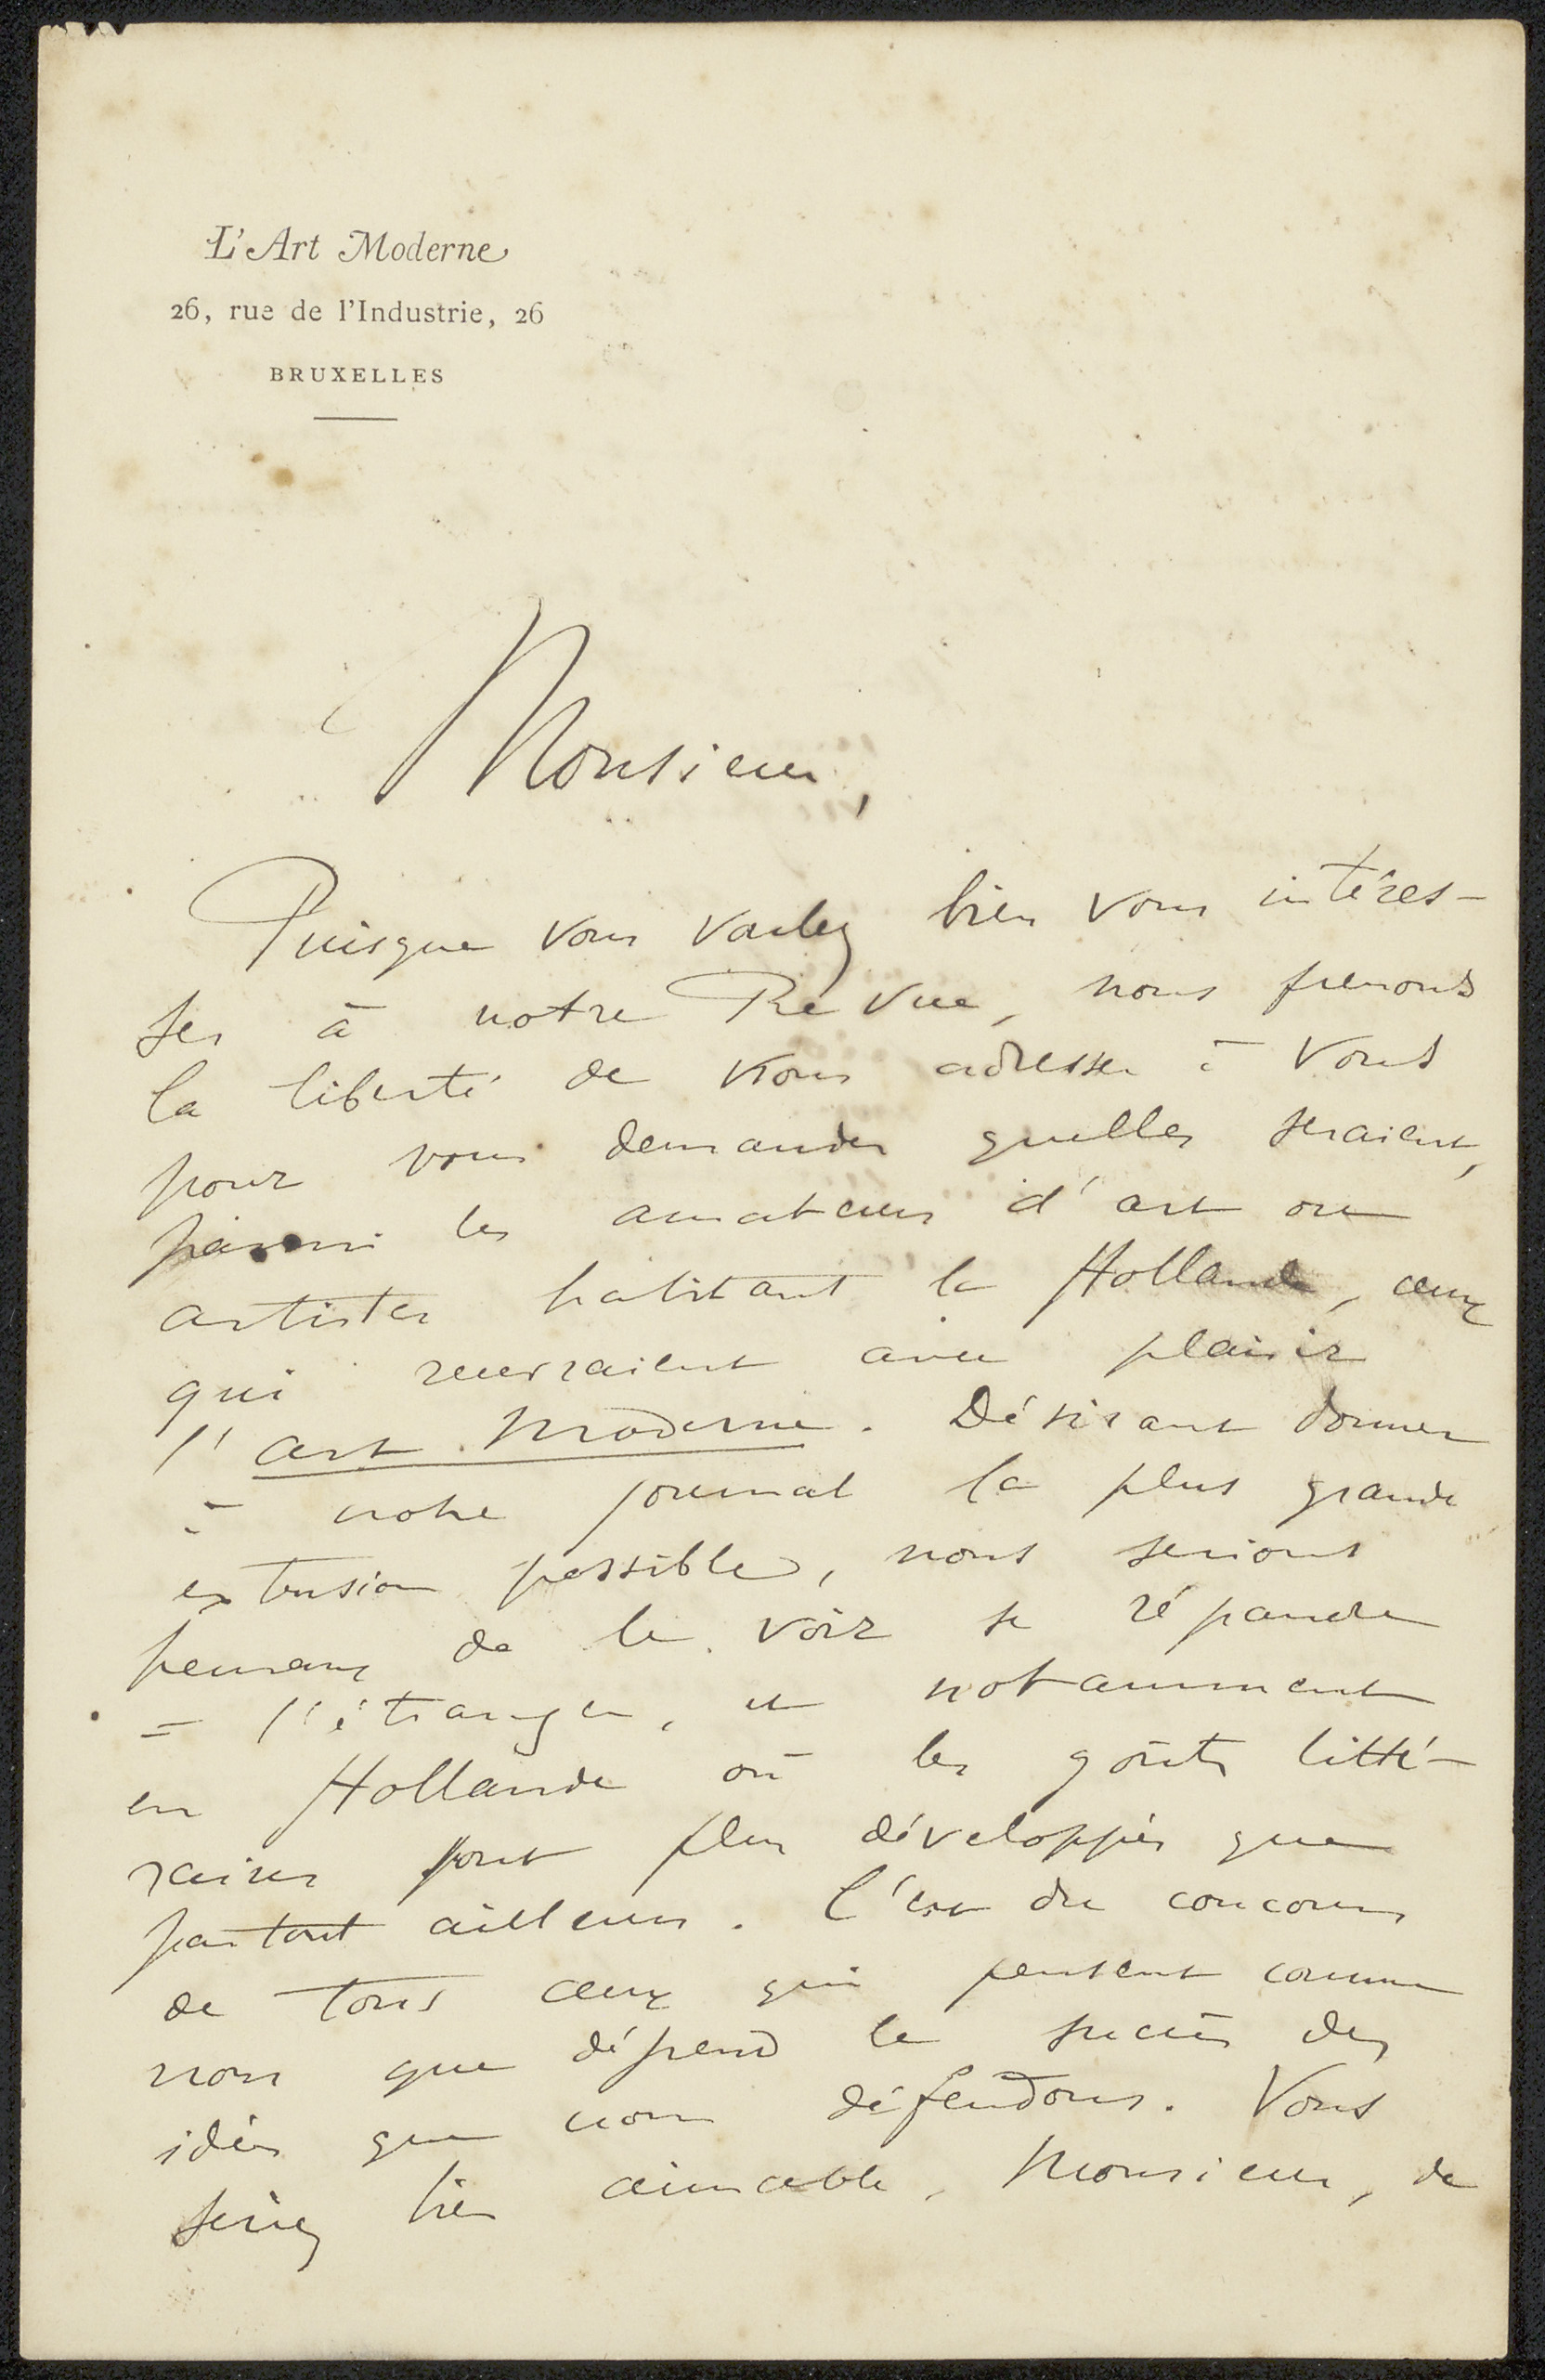 L'Art Moderne
26, rue de l'Industrie, 26
BRUXELLES
Monsieur,
Puisque vous voulez bien vous intéres-
ser à notre Revue, nous prenons
la liberté de nous adresser à vous
pour vous demander quelles seraient,
parmi les amateurs d'art ou
artistes habitant la Hollande, ceux
qui recevraient avec plaisir
l'art moderne. Désirant donner
à notre journal la plus grande
extension possible, nous serions
heureux de le voir se répandre
à l'étranger, et notamment
en Hollande où les goûts litté-
raires sont plus développés que
partout ailleurs. C'est du concours
de tous ceux qui pensent comme
nous que dépend le succès des
idées que nous défendons. Vous
seriez bien aimable, Monsieur, de